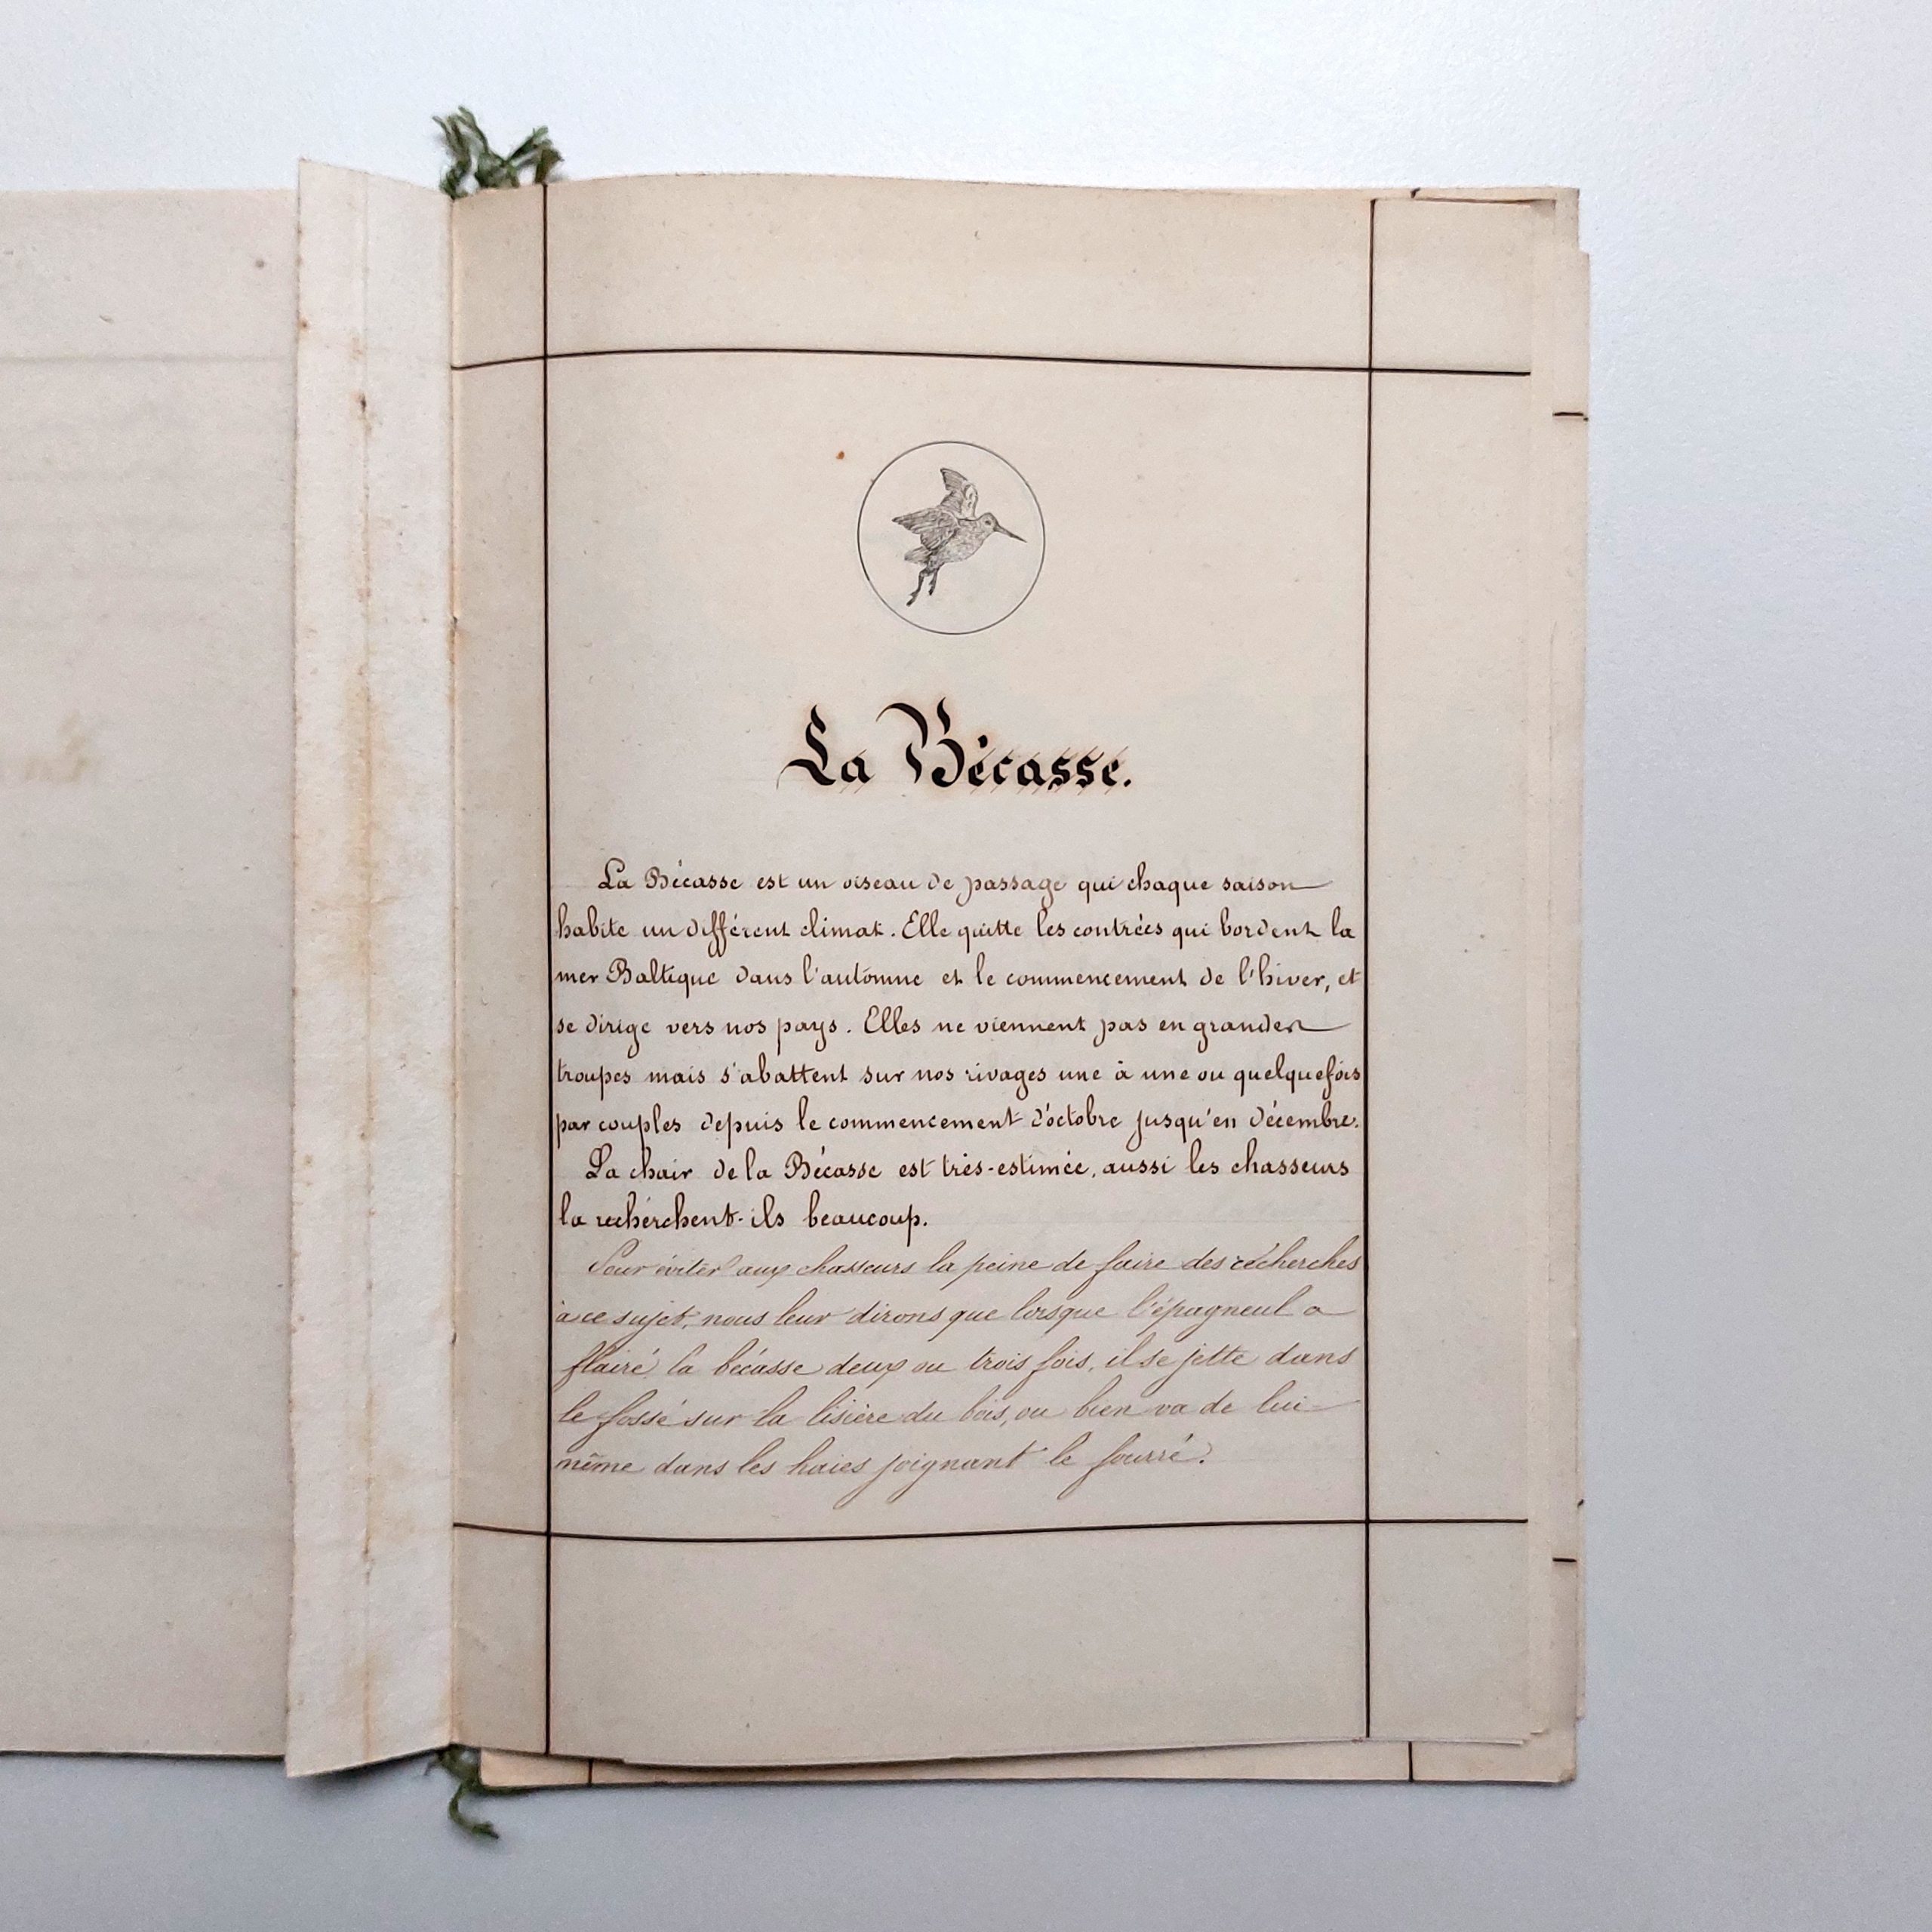 La Bécasse.
La Bécasse est un oiseau de passage qui chaque saison
habite un différent climat. Elle quitte les contrées qui bordent la
mer Baltique dans l'automne et le commencement de l'hiver, et
se dirige vers nos pays. Elles ne viennent pas en grandes
troupes mais s'abattent sur nos rivages une à une ou quelquefois
par couples depuis le commencement d'octobre jusqu'en décembre.
La chair de la Bécasse est très-estimée, aussi les chasseurs
la recherchent-ils beaucoup.
Pour éviter aux chasseurs la peine de faire des recherches
à ce sujet, nous leur dirons que lorsque l'épagneul a
flairé la bécasse deux ou trois fois, il se jette dans
le fossé sur la lisière du bois, ou bien va de lui-
même dans les haies joignant le fourré.